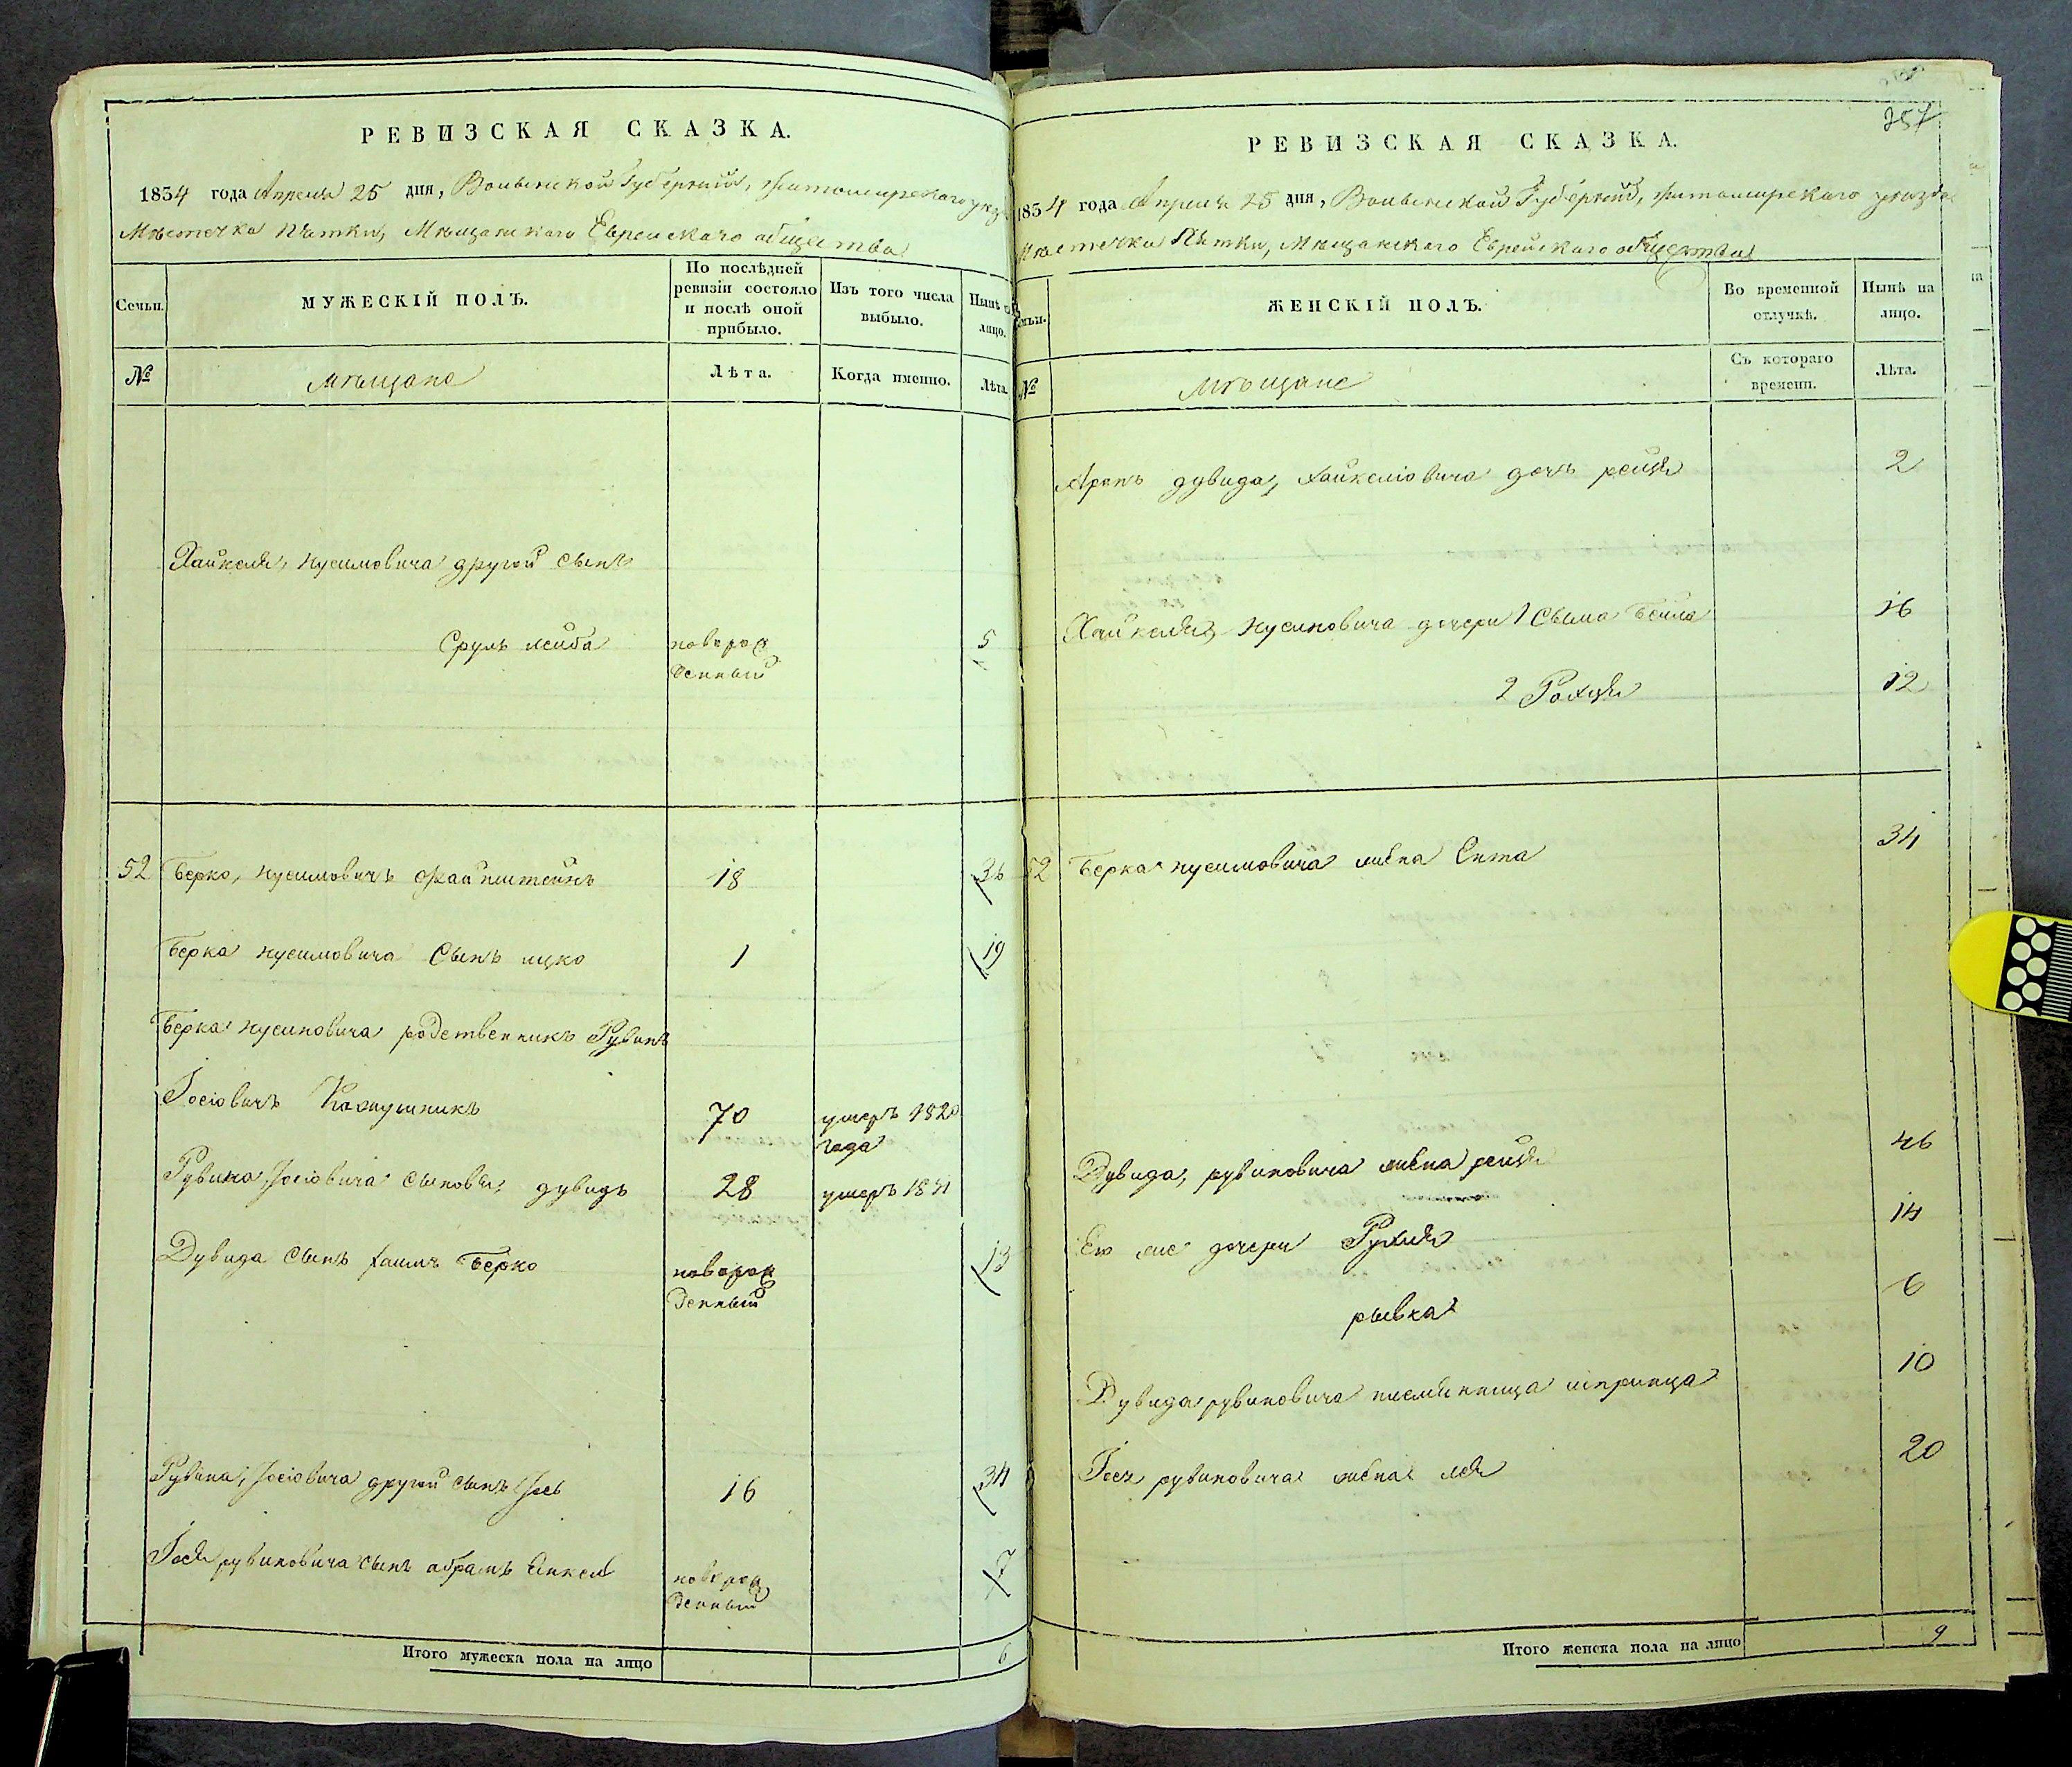 РЕВИЗСКАЯ СКАЗКА.
1834 года Апреля 25 дня, Волынской Губерній, Житомирского уез
Мѣстечка Пятки, Мѣщанского Еврейского общества
Семьи.
МУЖЕСКІЙ ПОЛЪ.
По послѣдней ревизіи состояло и послѣ оной прибыло.
Изъ того числа выбыло.
Нынѣ на лицо.
№
мѣщане
Лѣта.
Когда именно.
Лѣта.
Хайкеля, нусимовича другой сынъ
Сруль лейба новорож 5
денный
52 Берко, нусимовичъ файнштейнъ 18 36
Берка нусимовича сынъ ицко 1 19
Берка нусиновича родственникъ Рувинъ
Іосіовичъ 70 умеръ 1820
года
Рувина, Іосіовича сыновья, дувидъ 28 умеръ 1831
Дувида сынъ хаимъ Берко новорож 13
денный
Рувина, Іосіовича другой сынъ Іось 16 34
Іося рувиновича сынъ абрамъ Янкель новорож 7
денный
Итого мужеска пола на лицо 6
257
РЕВИЗСКАЯ СКАЗКА.
1834 года Апреля 25 дня, Волынской Губерній, Житомирского уезда
Мѣстечка Пятки, Мѣщанского Еврейского общества
Семьи.
ЖЕНСКІЙ ПОЛЪ.
Во временной отлучкѣ.
Нынѣ на лицо.
№
мѣщане
Съ котораго времени.
Лѣта.
Аронъ дувида, Хайкеліовича дочь рейзя 2
Хайкеля, нусиновича дочери 1 Сима бейла 16
2 12
52 Берка нусимовича жена Ента 34
Дувида, рувиновича жена рейзя 46
Ею же дочери Рухля 14
рывка 6
Дувида рувиновича племянница шпринца 10
Іося рувиновича жена лея 20
Итого женска пола на лицо 9